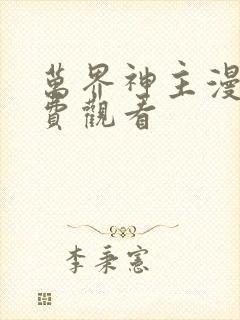 萬界神主漫
費觀看
李秉憲